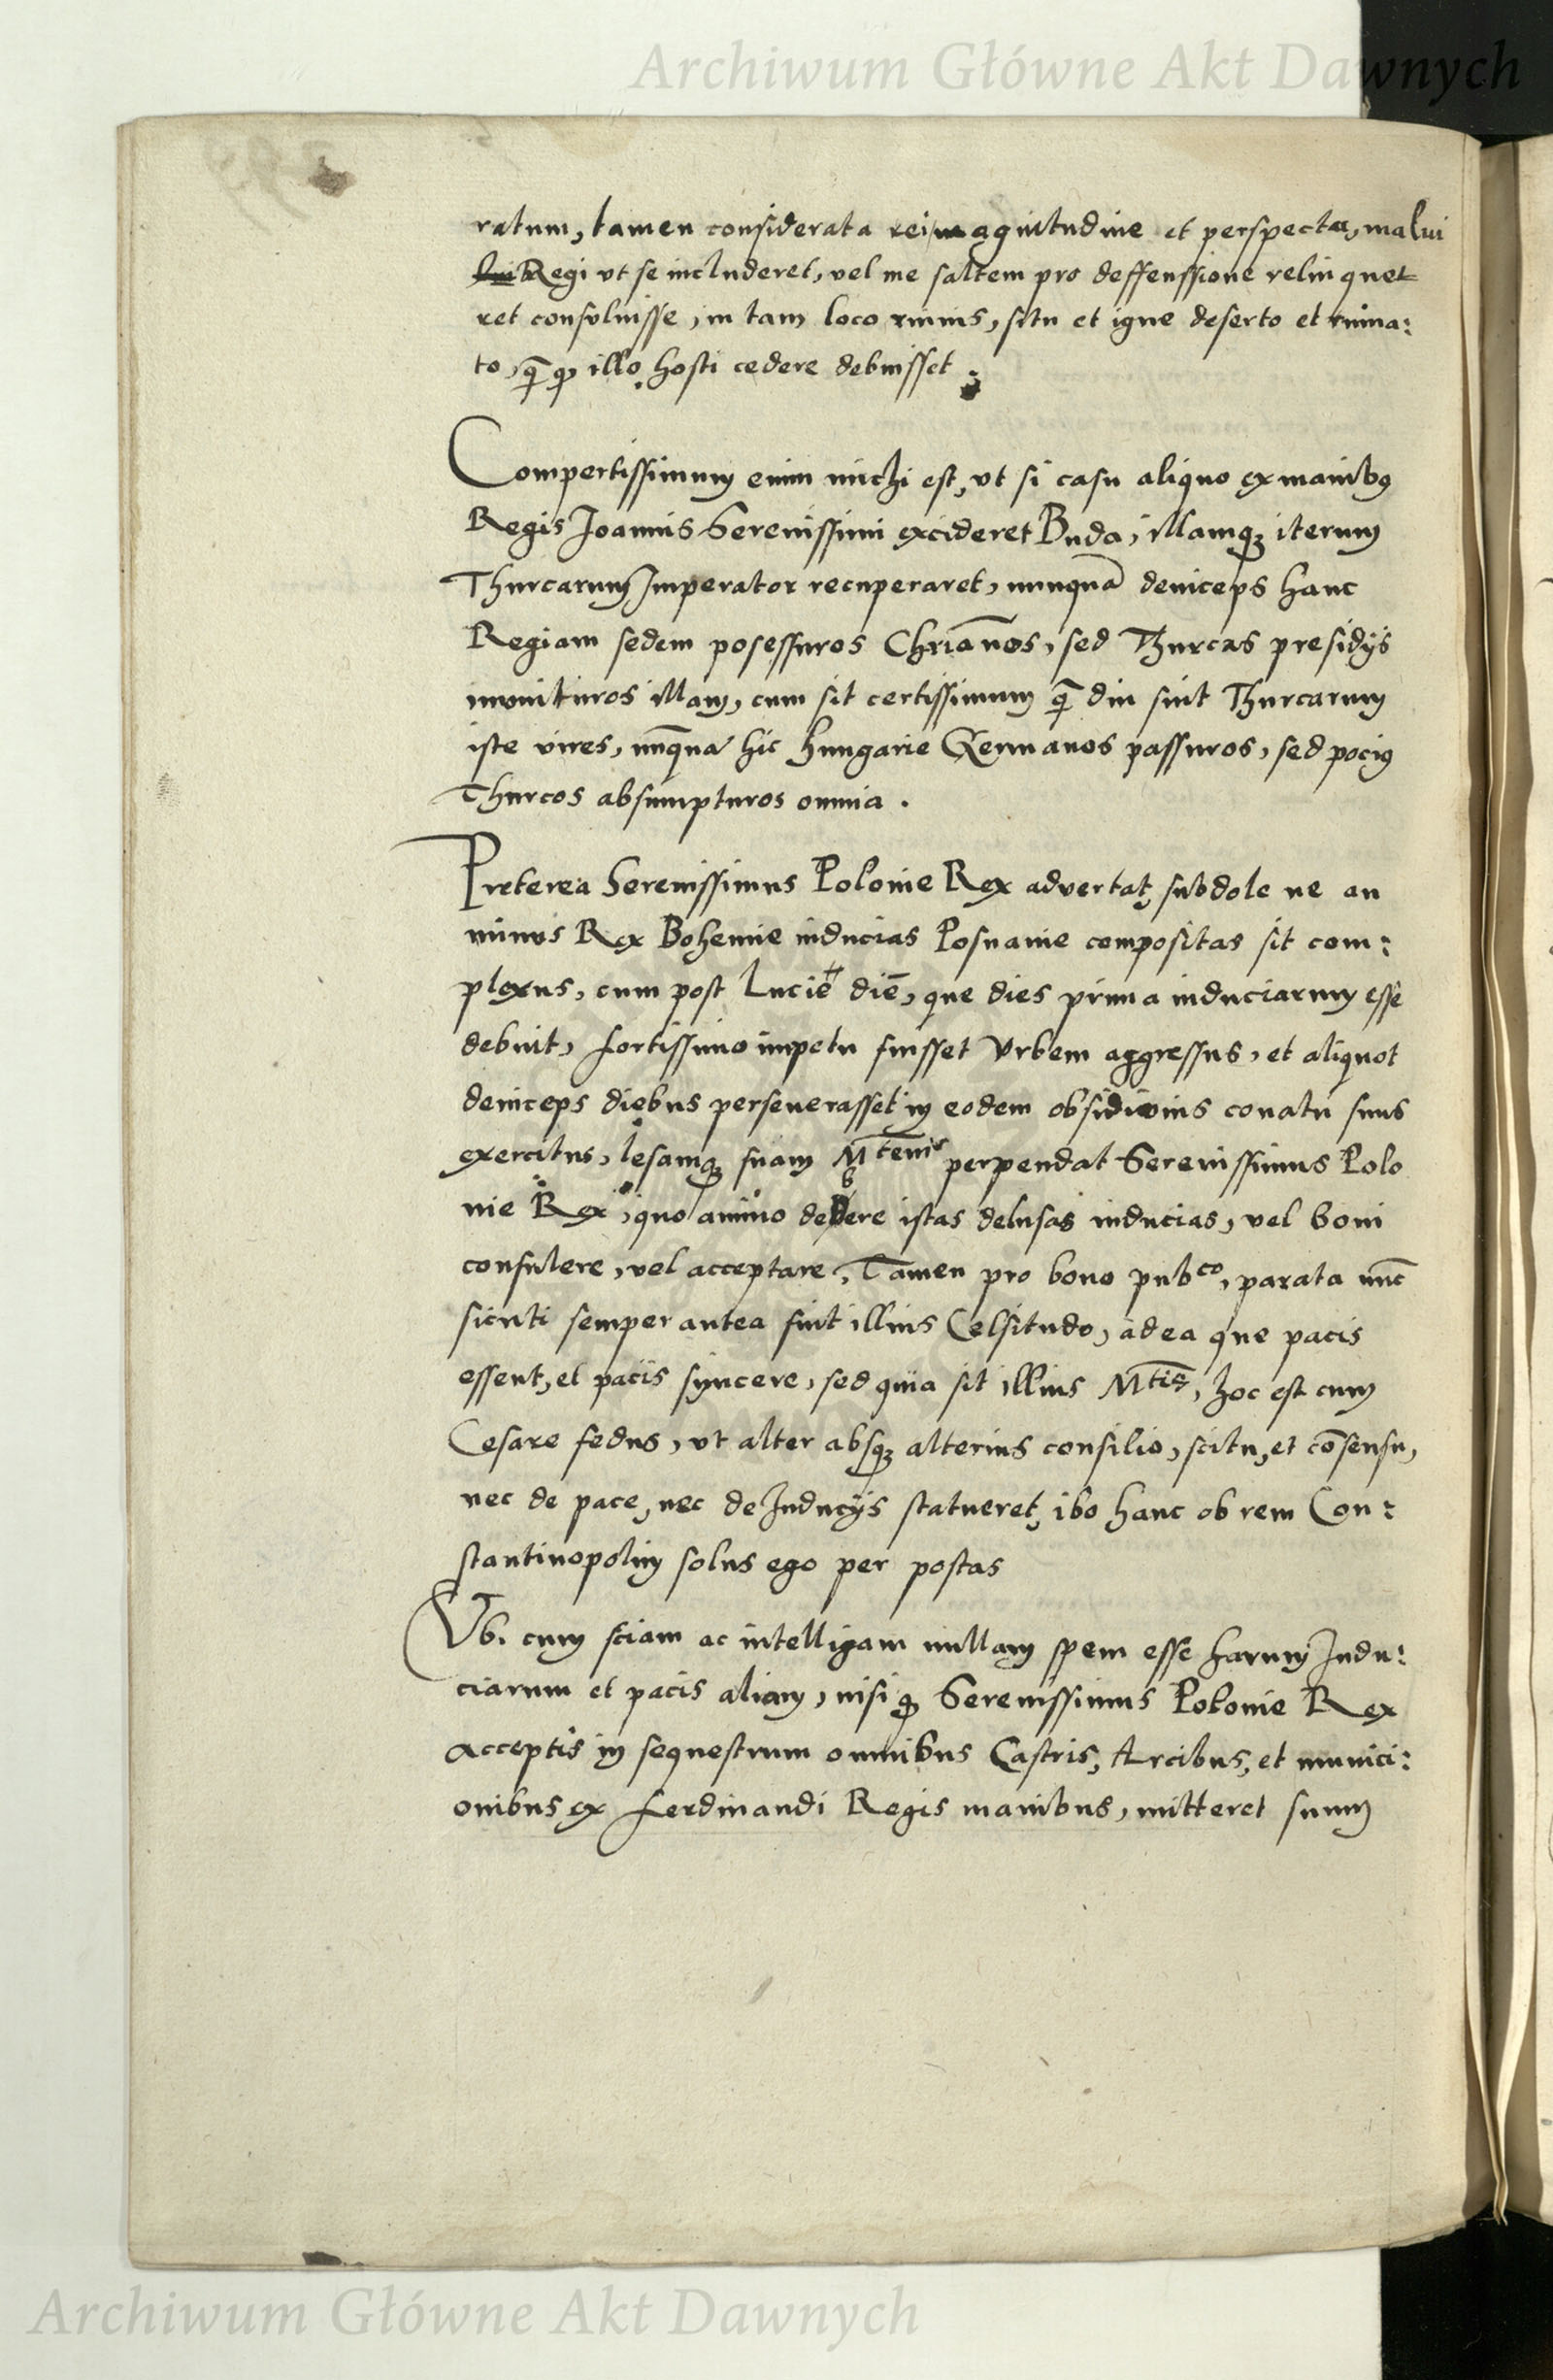 Archiwum Główne Akt Dawnych
ratum, tamen considerata rei magnitudine et perspecta, malui
Regi vt se includeret, vel me saltem pro deffenssione relinque
ret consuluisse, in tam loco ruinis, situ et igne deserto et ruina:
to, q̄ꝫ illo hosti cedere debuisset
Compertissimum enim michi est, vt si casu aliquo ex manibꝯ
Regis Joannis Serenissimi excideret Buda, illamqꝫ iterum
Thurcarum Imperator recuperaret, nunquā deinceps hanc
Regiam sedem posessuros Chrianos, sed Thurcas presidijs
munituros illam, cum sit certissimum q̄ diu sint Thurcarum
iste vires, nūqua hic Hungarie Germanos passuros, sed pociꝯ
Thurcos absumpturos omnia .
Preterea Serenissimus Polonie Rex advertat, subdole ne an
minus Rex Bohemie inducias Posnanie compositas sit com:
plexus, cum post Lucie diē, que dies prima induciarum esse
debuit, fortissimo impetu fuisset Vrbem aggressus, et aliquot
deinceps diebus perseuerasset in eodem obsidionis conatu suus
exercitus, lesamqꝫ suam Mtem perpendat Serenissimus Polo
nie Rex, quo animo debere istas delusas inducias, vel boni
consulere, vel acceptare, Tamen pro bono pubco, parata nūc
sicuti semper antea fuit illius Celsitudo, ad ea que pacis
essent, et pacis syncere, sed quia sit illius Mtis, hoc est cum
Cesare fedus, vt alter absqꝫ alterius consilio, scitu, et cōsensu,
nec de pace, nec de Inducijs statueret, ibo hanc ob rem Con:
stantinopolim solus ego per postas
Vb. cum sciam ac intelligam nullam spem esse harum Indu:
ciarum et pacis aliam, nisi ꝙ Serenissimus Polonie Rex
acceptis in sequestrum omnibus Castris, Arcibus, et munici:
onibus ex Ferdinandi Regis manibus, mitteret suum
Archiwum Główne Akt Dawnych